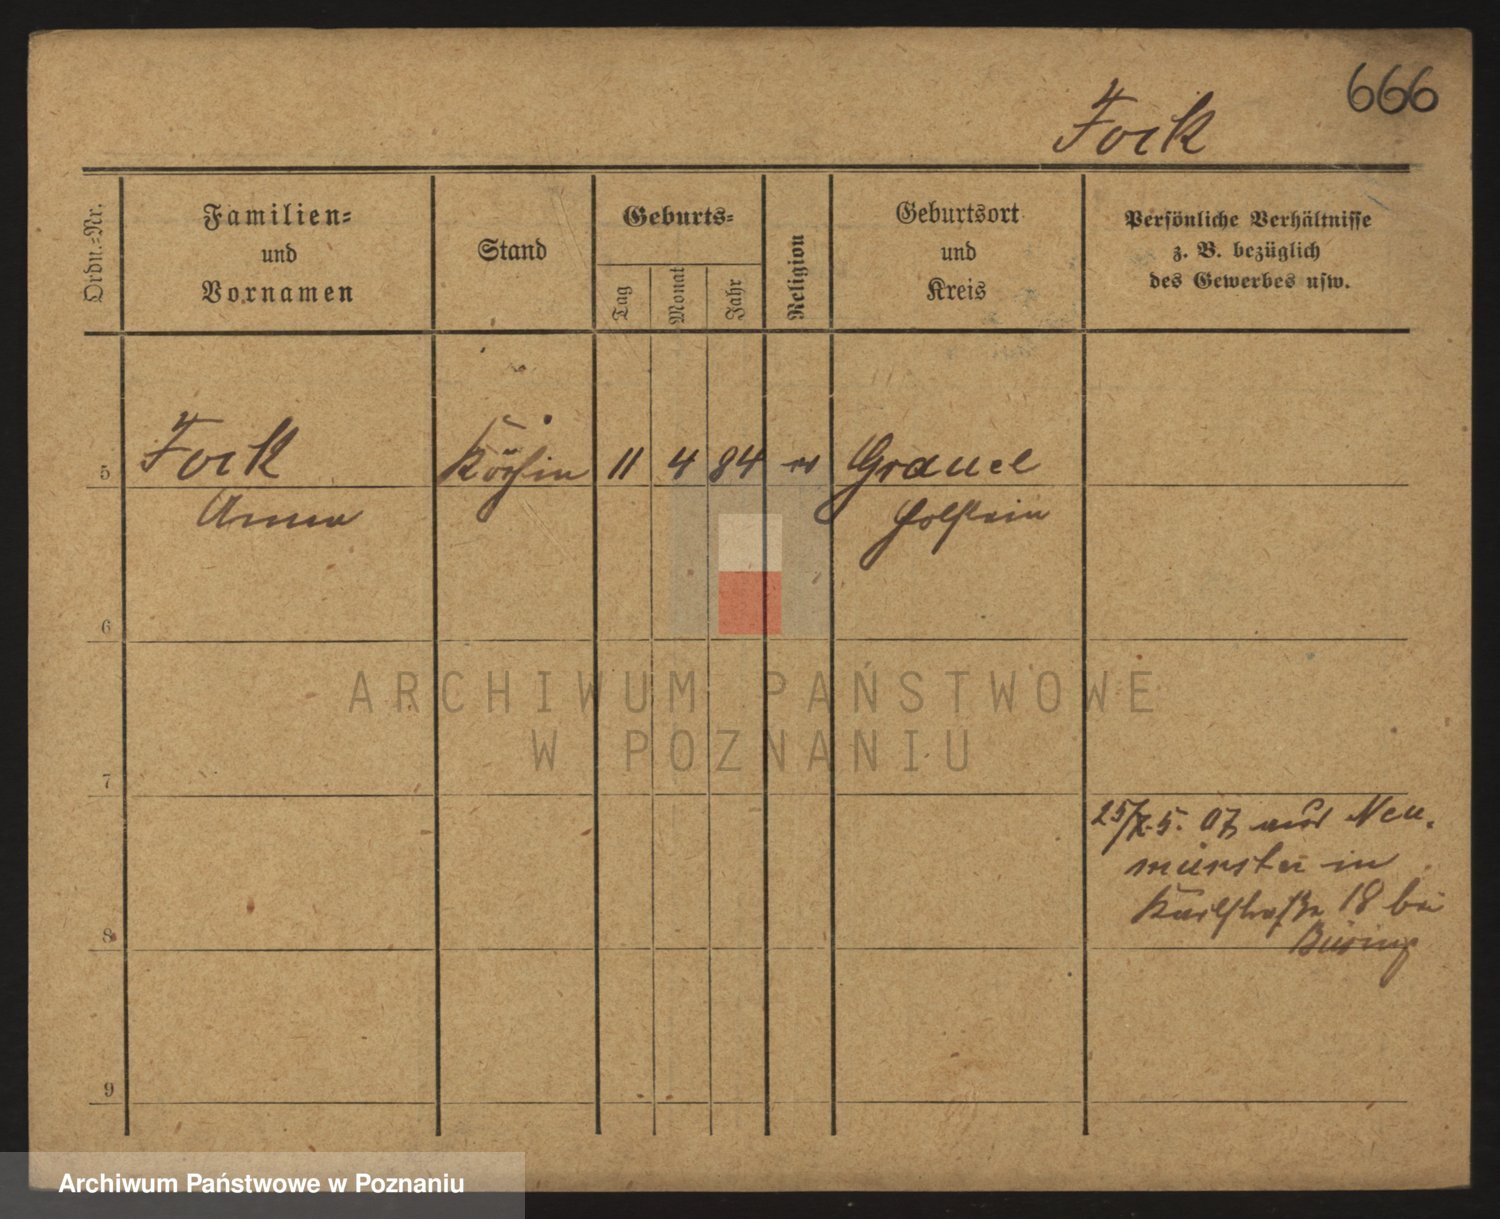 666
Fock
Ordn.-Nr.
Familien-
und
Vornamen
Stand
Geburts-
Tag
Monat
Jahr
Religion
Geburtsort
und
Kreis
Persönliche Verhältnisse
z. B. bezüglich
des Gewerbes usw.
5
Fock
Köchin
11
4
84
Grauel
Anna
Holstein
6
ARCHIWUM PAŃSTWOWE
W POZNANIU
7
5. 07 aus Neu-
münster in
Karlstraße 18 bei
Büring
8
9
Archiwum Państwowe w Poznaniu